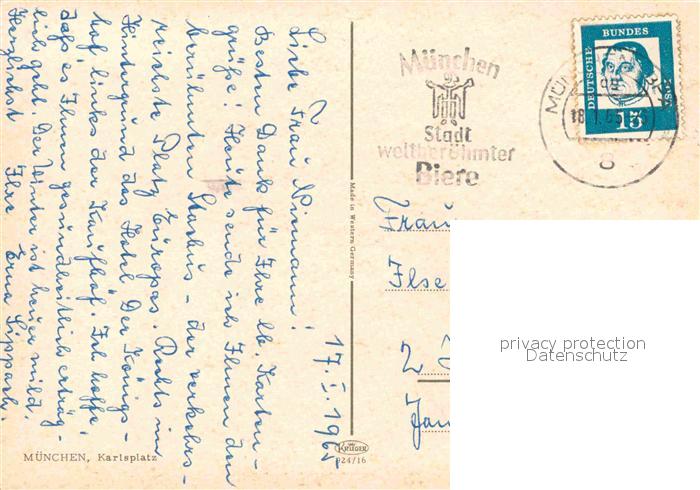 17. I. 1965
Liebe Frau Niemann!
Besten Dank für Ihre lb. Karten-
grüße! Heute sende ich Ihnen den
berühmten Stachus - der verkehrs-
reichste Platz Europas. Rechts im
Hintergrund das Hotel Der Königs-
hof links der Kaufhof. Ich hoffe,
daß es Ihnen gesundheitlich erträg-
lich geht. Der Winter ist heuer mild.
Herzlichst Ihre Erna Lippach.
MÜNCHEN, Karlsplatz
Made in Western Germany
KRÜGER
924/16
München
Stadt
weltberühmter
Biere
DEUTSCHE BUNDESPOST
15
8
Frau
Ilse
privacy protection
Datenschutz